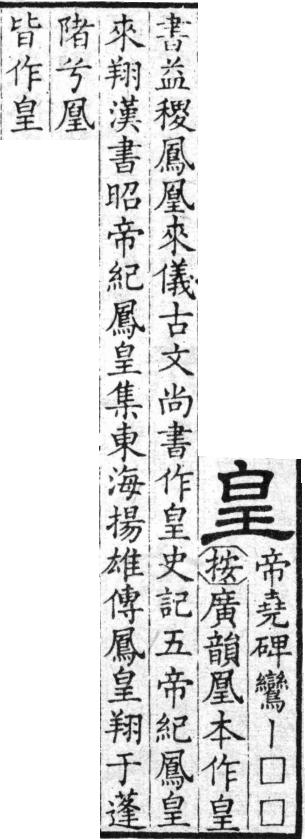 皇
帝堯碑鸞丨□□
按廣韻凰本作皇
書益稷鳳凰來儀古文尚書作皇史記五帝紀鳳皇
來翔漢書昭帝紀鳳皇集東海揚雄傳鳳皇翔于蓬
陼兮凰
皆作皇